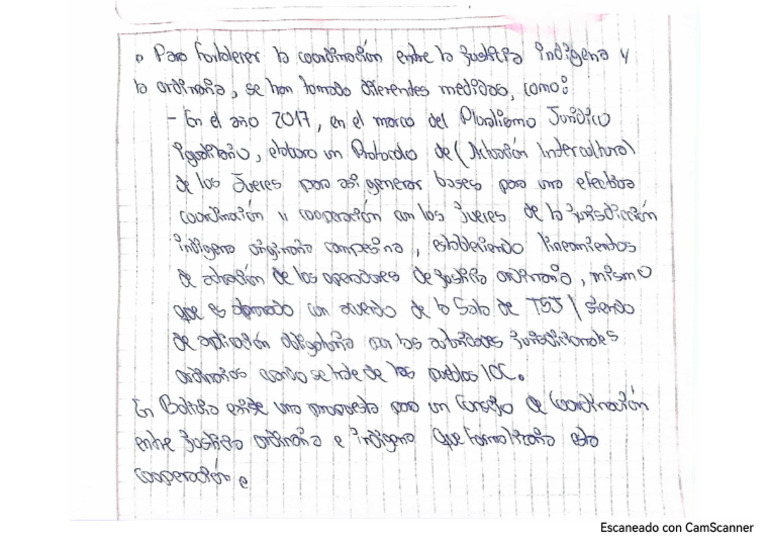 • Para fortalecer la coordinación entre la justicia indígena y
la ordinaria, se han tomado diferentes medidas, como:
- En el año 2017, en el marco del Pluralismo Jurídico
igualitario, elaboro un Protocolo de (Actuación Intercultural)
de los Jueces para asi generar bases para una efectiva
coordinación y cooperación con los jueces de la jurisdicción
indígena originaria campesina, estableciendo lineamientos
de actuación de los operadores de justicia ordinaria, mismo
que es aprobado con acuerdo de la Sala de TSJ / siendo
de aplicación obligatoria con las autoridades jurisdiccionales
ordinarias cuando se trate de los pueblos IOC.
En Bolivia existe una propuesta para un Consejo de Coordinación
entre justicia ordinaria e indígena que formalizaría esta
cooperación e
Escaneado con CamScanner